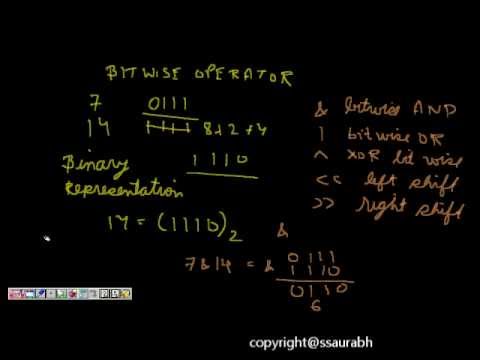 BITWISE OPERATOR
7 0111
14 1111 8+2+4
Binary 1110
Representation
14 = (1110)2
& bitwise AND
| bitwise OR
^ XOR bit wise
<< left shift
>> right shift
&
7&14 = & 0111
1110
0110
6
copyright@ssaurabh